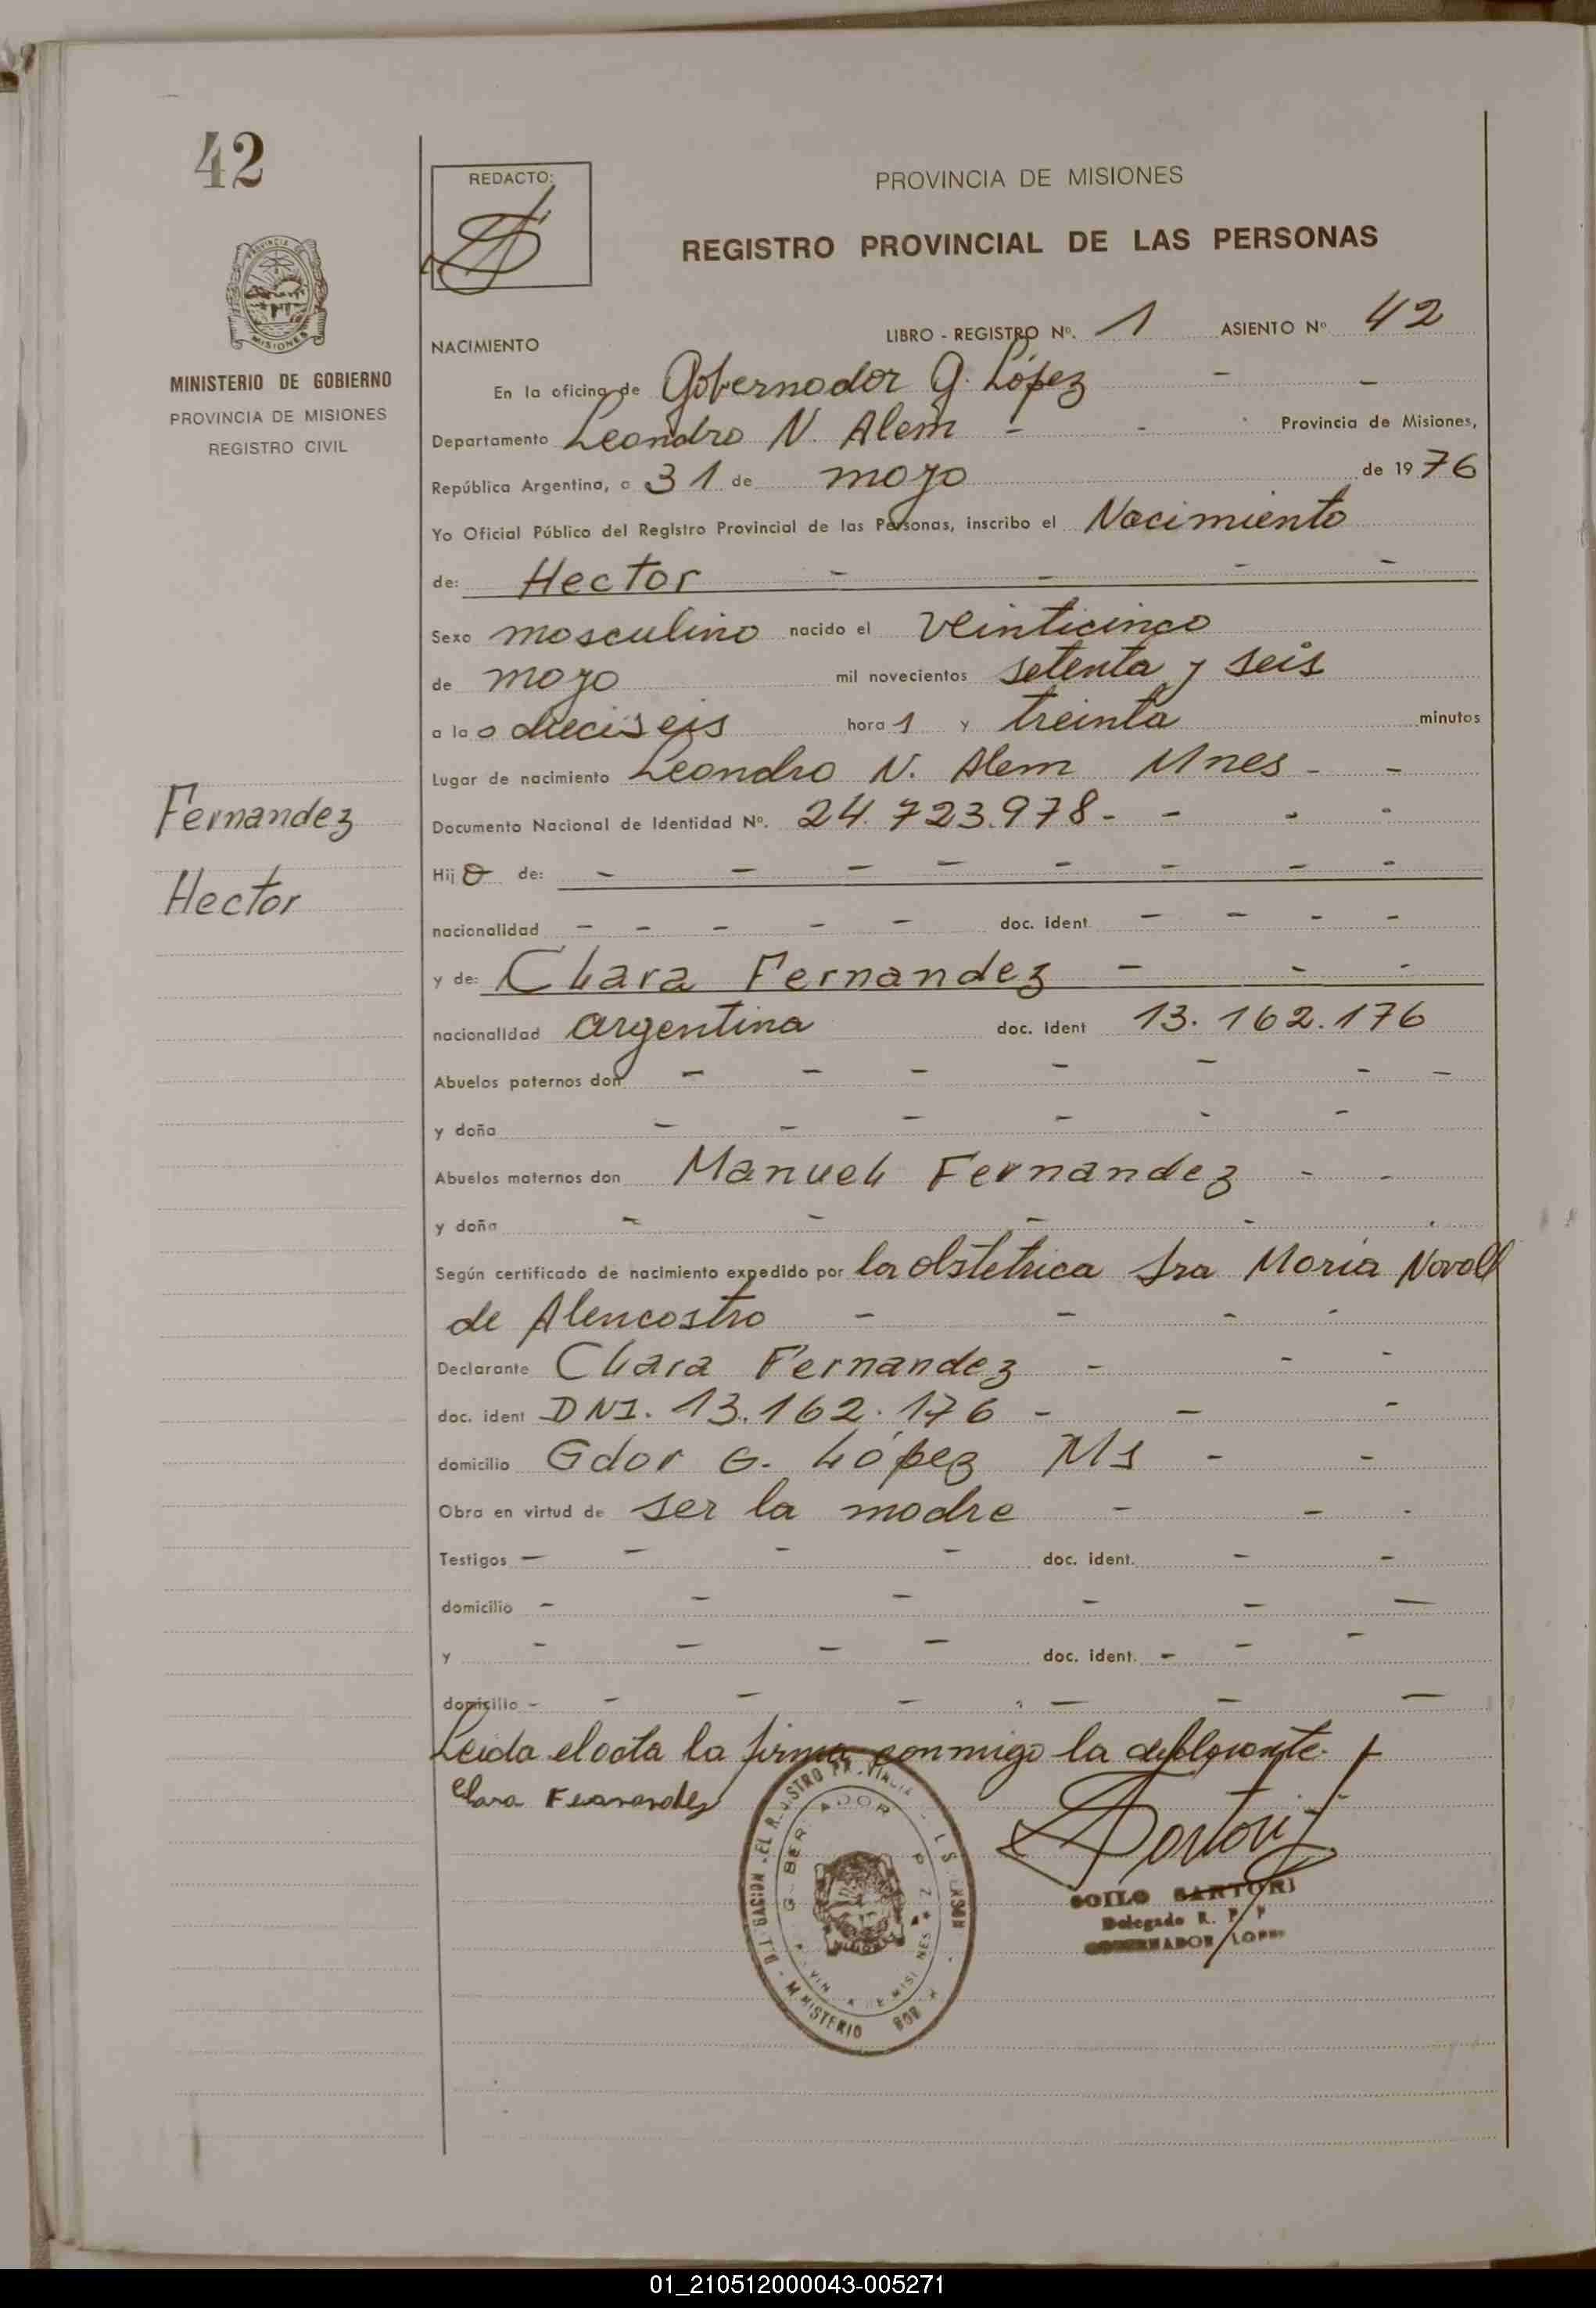 42
REDACTO:
PROVINCIA DE MISIONES
REGISTRO PROVINCIAL DE LAS PERSONAS
MISIONES
MINISTERIO DE GOBIERNO
PROVINCIA DE MISIONES
REGISTRO CIVIL
LIBRO - REGISTRO Nº. 1 ASIENTO Nº 42
NACIMIENTO
En la oficina de Gobernador G. López - -
Departamento Leandro N. Alem - - Provincia de Misiones,
República Argentina, a 31 de mayo de 1976
Yo Oficial Público del Registro Provincial de las Personas, inscribo el Nacimiento
de: Hector - - - -
Sexo masculino nacido el veinticinco
de mayo mil novecientos setenta y seis
a las dieciseis horas y treinta minutos
Lugar de nacimiento Leandro N. Alem Mnes - -
Documento Nacional de Identidad Nº. 24.723.978 - - - -
Fernandez
Hector
Hijo de: - - - - - - - -
nacionalidad - - - - - doc. ident - - - -
y de: Clara Fernandez - - -
nacionalidad argentina doc. ident 13.162.176
Abuelos paternos don - - - - - - -
y doña - - - - - -
Abuelos maternos don Manuel Fernandez - -
y doña - - - - -
Según certificado de nacimiento expedido por la obstetrica Sra Maria
de Alencastro - - - -
Declarante Clara Fernandez - - -
doc. ident DNI. 13.162.176 - - -
domicilio Gdor G. López Ms - -
Obra en virtud de ser la madre - - -
Testigos - - - - doc. ident. - -
domicilio - - - - - -
y - - - - doc. ident. - - -
domicilio - - - - - - -
Leida el acta la firma conmigo la declarante.
Clara Fernandez
SOILO SARTORI
Delegado R. P. P
GOBERNADOR LOPEZ
MINISTERIO
01_210512000043-005271